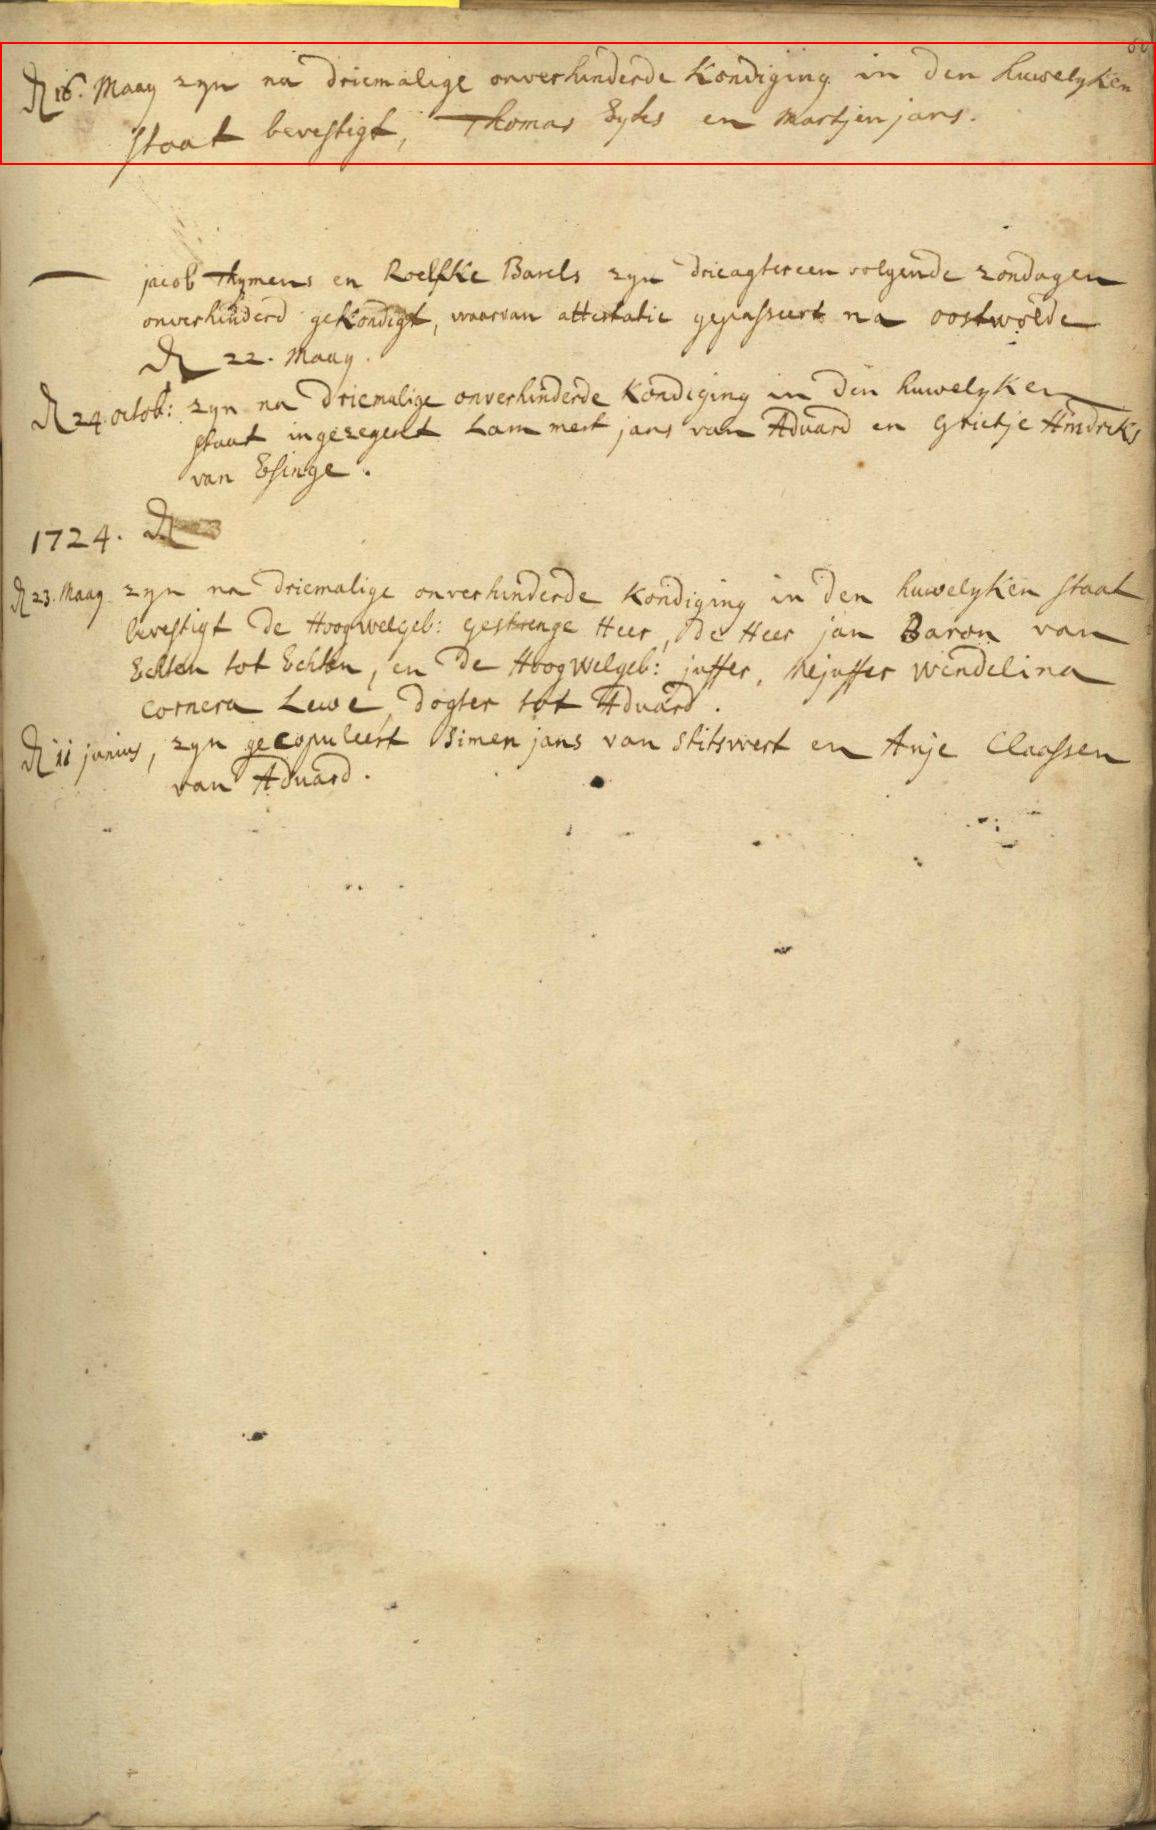 Dn 16. Maay zyn na driemalige onverhinderde Kondiging in den huwelyken
staat bevestigt, Thomas Eytes en Martjen jans.
jacob Thymens en Roelfke Barels zyn drieagtereen volgende zondagen
onverhinderd gekondigt, waarvan attestatie gepasseert na oostwolde
Dn 22. Maay.
Dn 24. octob: zyn na driemalige onverhinderde Kondiging in den huwelyken
staat ingezegent Lammert jans van Aduard en Grietje Hindriks
van Esinge.
1724. Dn
Dn 23. Maay zyn na driemalige onverhinderde Kondiging in den huwelyken staat
bevestigt De Hoogwelgeb: gestrenge Heer, De Heer jan Baron van
Echten tot Echten, en De Hoogwelgeb: juffer, Mejuffer Windelina
Cornera Lewe, dogter tot Aduard.
Dn 11 junius, zyn gecopuleert Simen jans van Stitswert en Anje Claassen
van Aduard.